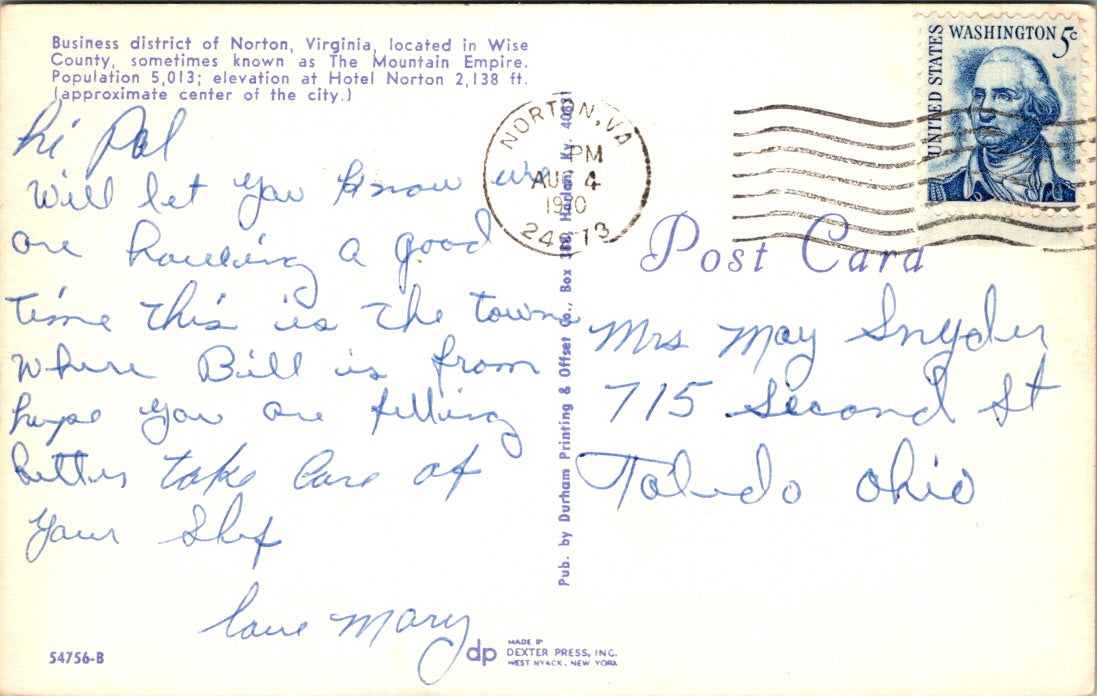 Business district of Norton, Virginia, located in Wise
County, sometimes known as The Mountain Empire.
Population 5,013; elevation at Hotel Norton 2,138 ft.
(approximate center of the city.)
hi Pal
Will let you know we
are having a good
time this is the town
where Bill is from
hope you are filling
better take care of
your slef
love Mary
54756-B
Pub. by Durham Printing & Offset Co., Box Harlan, Ky. 40831
dp
MADE BY
DEXTER PRESS, INC.
WEST NYACK, NEW YORK
NORTON, VA
PM
AUG 4
1970
24273
UNITED STATES
WASHINGTON 5c
Post Card
Mrs May Snyder
715 Second St
Toledo Ohio